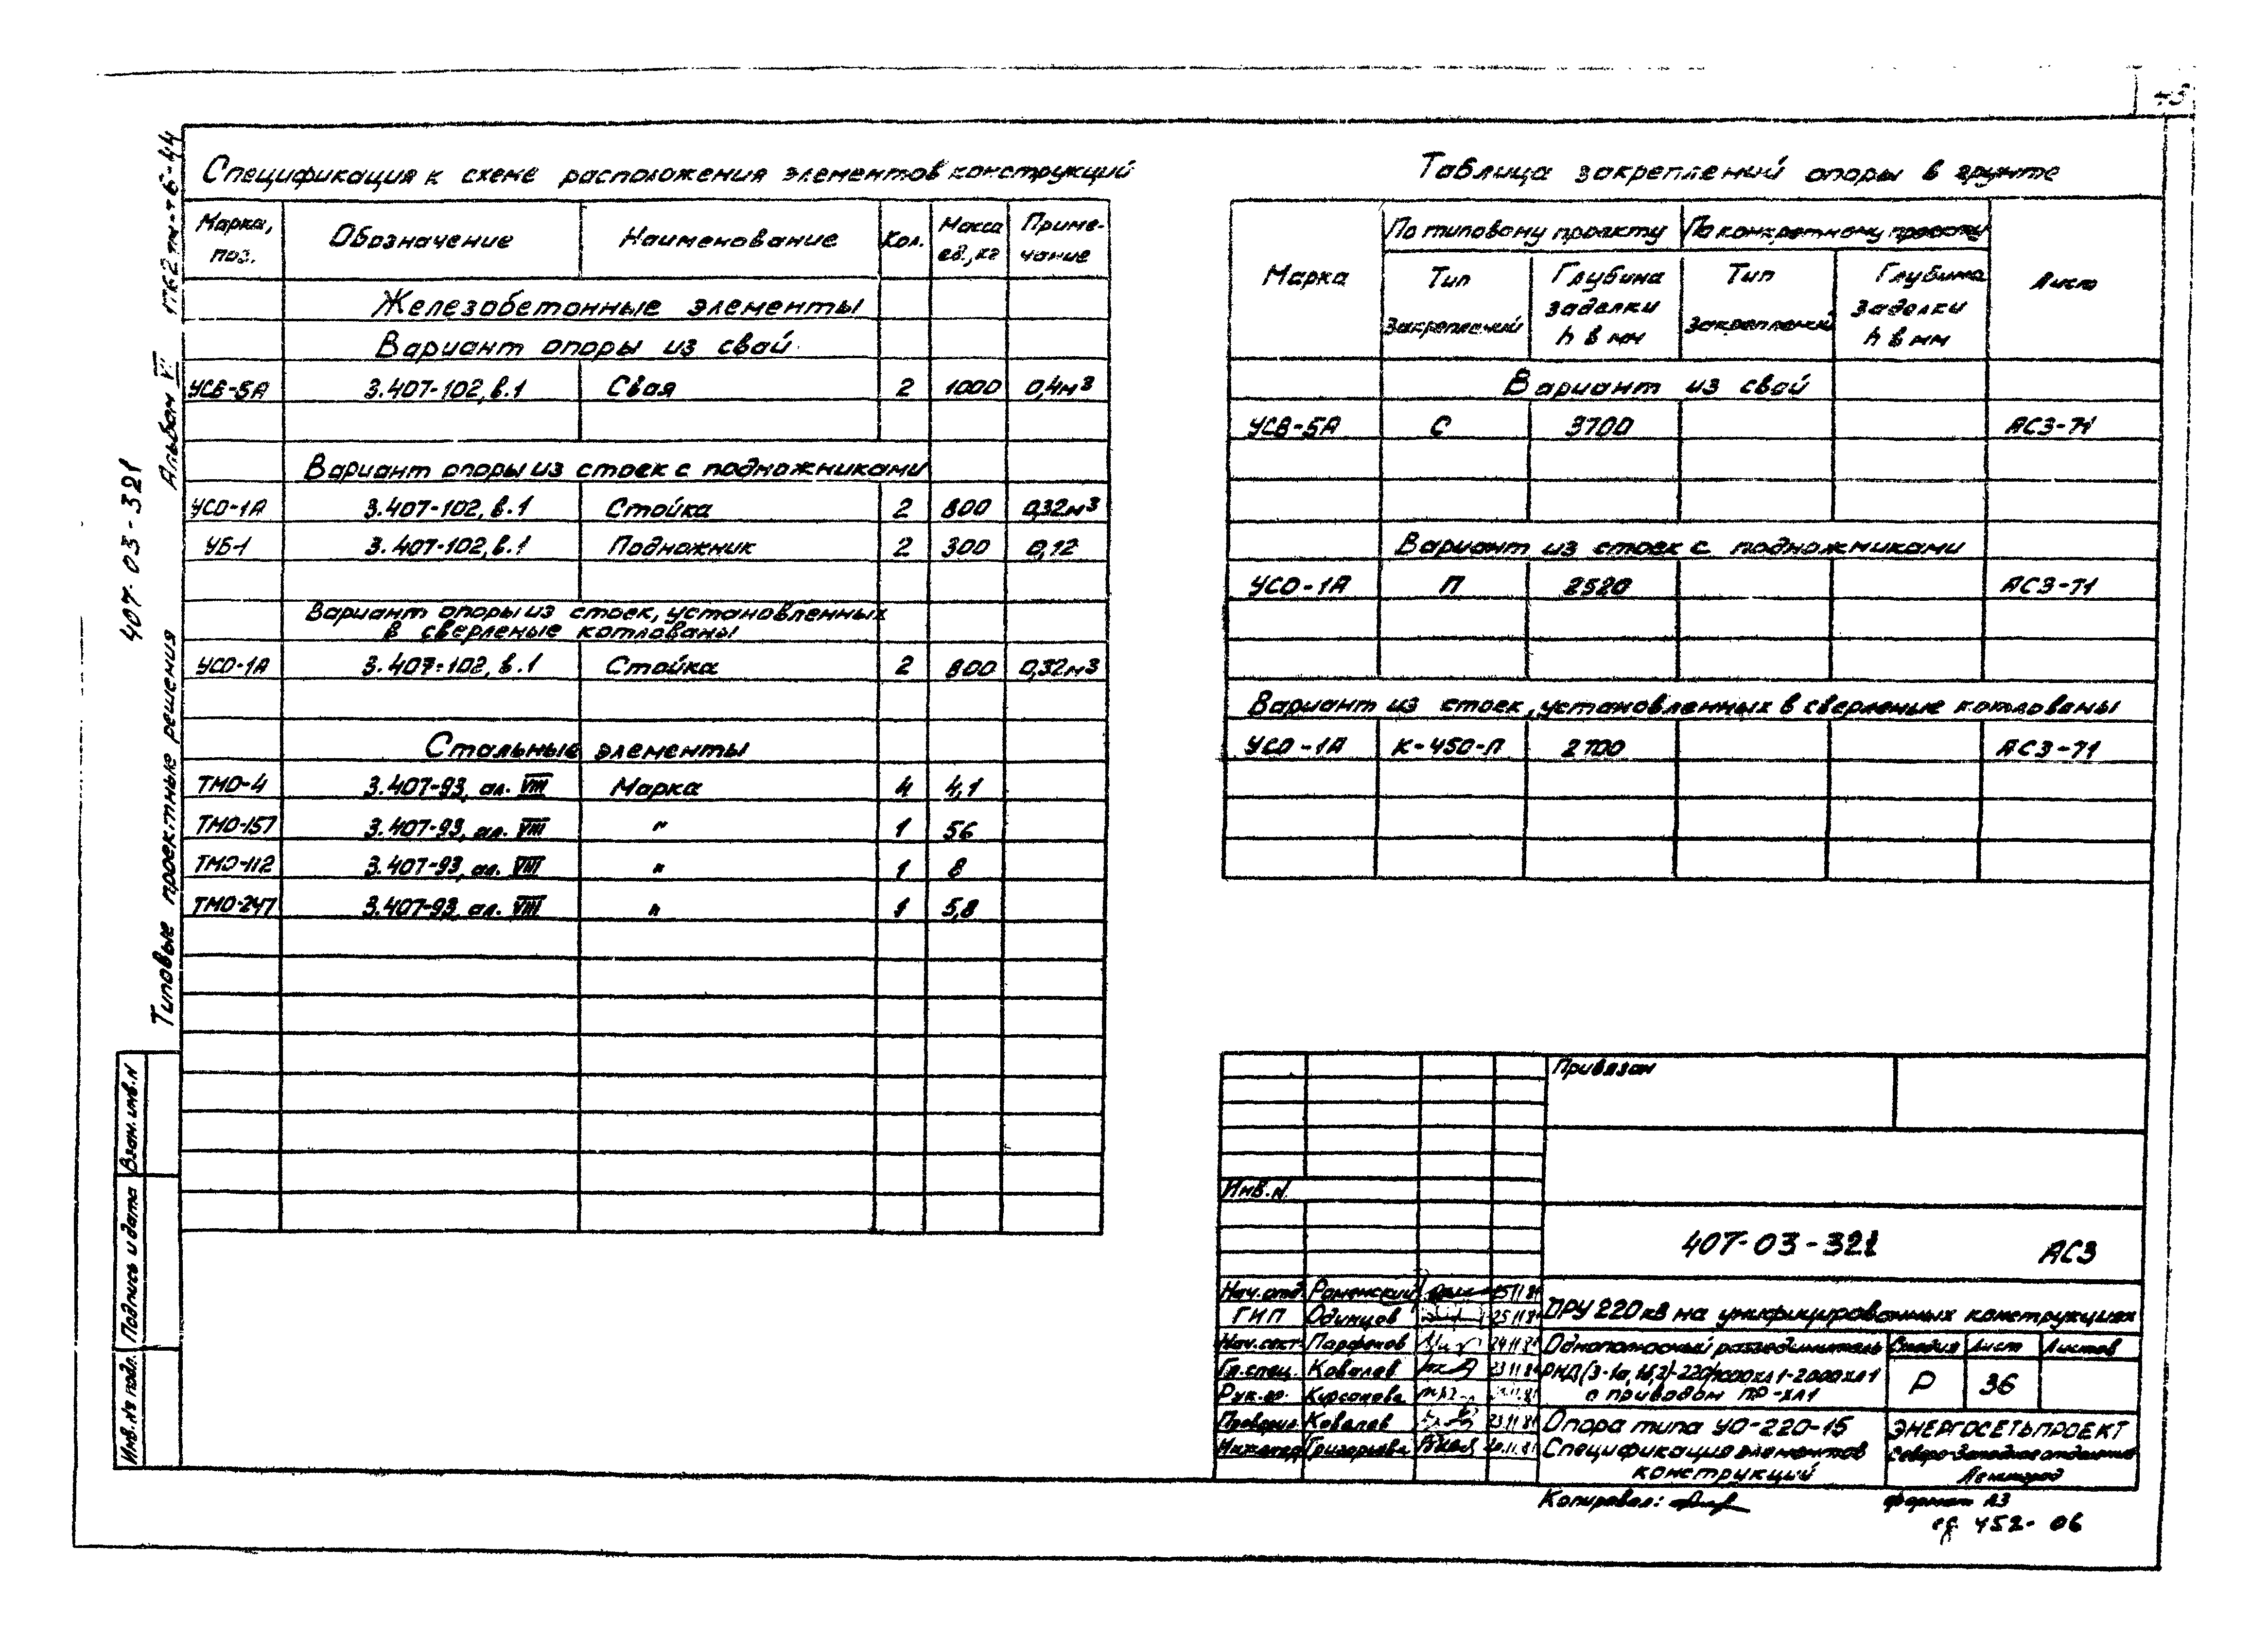 43
Спецификация к схеме расположения элементов конструкций
Марка, поз. Обозначение Наименование Кол. Масса ед., кг Примечание
Железобетонные элементы
Вариант опоры из свай
УСВ-5А 3.407-102, в.1 Свая 2 1000 0,4м3
Вариант опоры из стоек с подножниками
УСО-1А 3.407-102, в.1 Стойка 2 800 0,32м3
УБ-1 3.407-102, в.1 Подножник 2 300 0,12
Вариант опоры из стоек, установленных
в сверленые котлованы
УСО-1А 3.407-102, в.1 Стойка 2 800 0,32м3
Стальные элементы
ТМО-4 3.407-93, ал. VIII Марка 4 4,1
ТМО-157 3.407-93, ал. VIII " 1 56
ТМО-112 3.407-93, ал. VIII " 1 8
ТМО-247 3.407-93, ал. VIII " 1 5,8
Таблица закреплений опоры в грунте
Марка По типовому проекту По конкретному проекту Лист
Тип закреплений Глубина заделки h в мм Тип закреплений Глубина заделки h в мм
Вариант из свай
УСВ-5А С 3700 АС3-71
Вариант из стоек с подножниками
УСО-1А П 2520 АС3-71
Вариант из стоек, установленных в сверленые котлованы
УСО-1А К-450-П 2700 АС3-71
Типовые проектные решения 407-03-321 Альбом VI
Взам. инв. N
Подпись и дата
Инв. № подл.
Привязан
Инв. N
407-03-321 АС3
Нач. отд. Роменский
ГИП Одинцов 25.11.81
Нач. сект. Парфенов 24.11.81
Гл. спец. Ковалев 23.11.81
Рук. гр. Кирсанова
Проверил Ковалев 23.11.81
Инженер Григорьева 20.11.81
ОРУ 220 кВ на унифицированных конструкциях
Однополюсный разъединитель
РНД(3-1а,1б,2)-220/1000хл1-2000хл1
с приводом ПР-ХЛ1
Стадия Лист Листов
Р 36
Опора типа УО-220-15
Спецификация элементов
конструкций
ЭНЕРГОСЕТЬПРОЕКТ
Северо-Западное отделение
Ленинград
Копировал:
формат А3
452-06